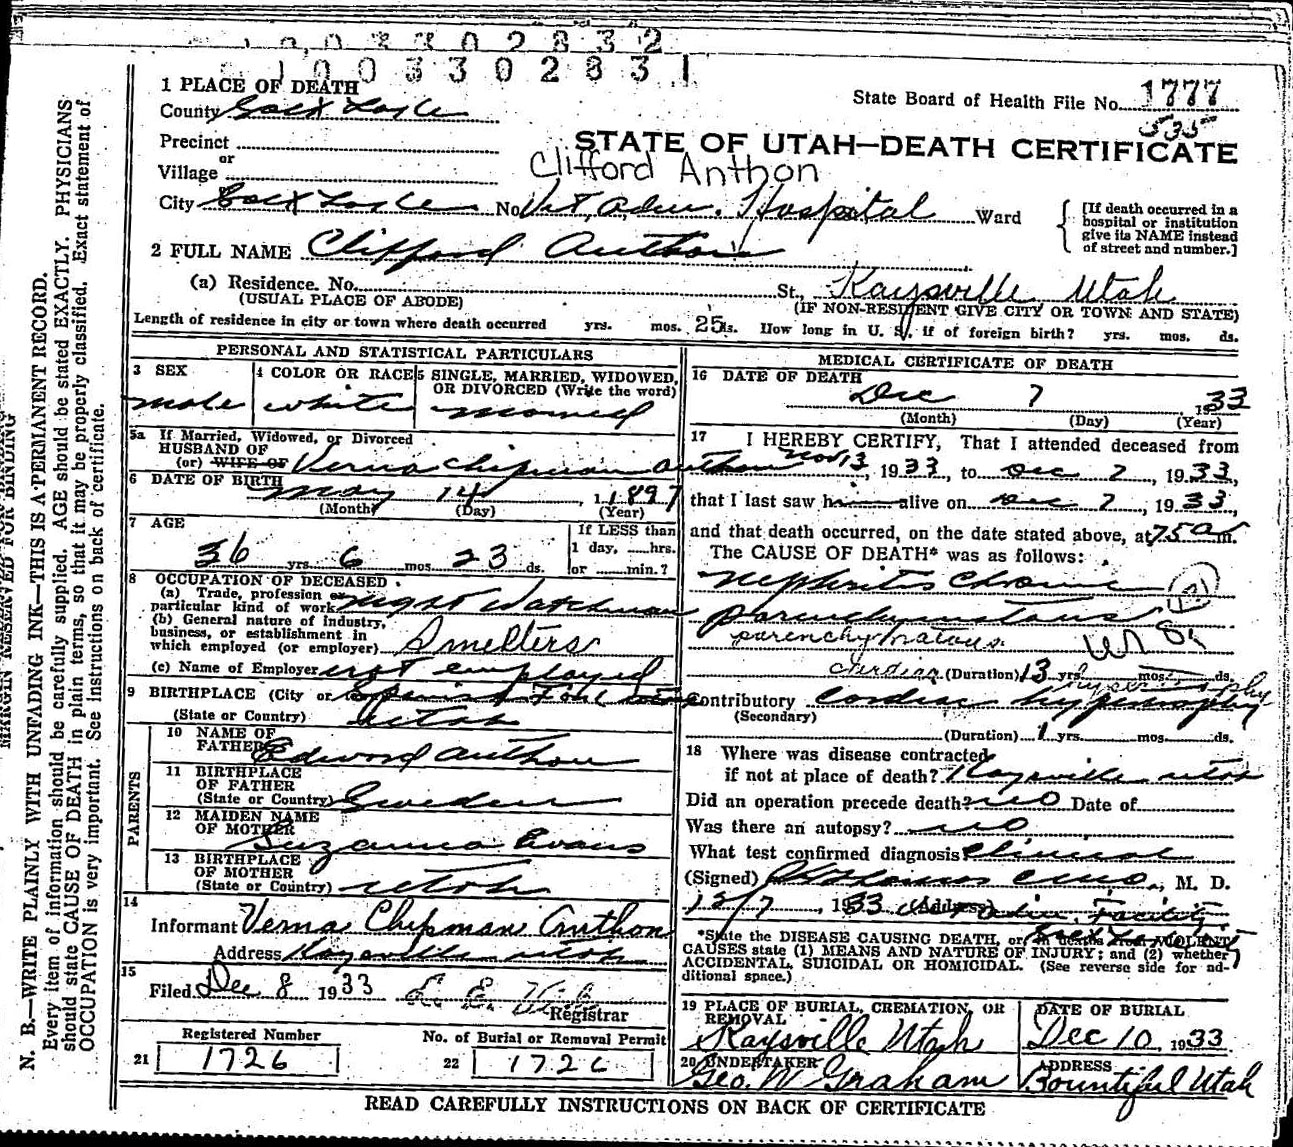 1003302832
1003302831
1 PLACE OF DEATH
County Salt Lake
State Board of Health File No. 1777
535
Precinct
or
Village
STATE OF UTAH—DEATH CERTIFICATE
Clifford Anthon
City Salt Lake No. Vet, Adm. Hospital Ward
[If death occurred in a
hospital or institution
give its NAME instead
of street and number.]
2 FULL NAME Clifford Anthon
(a) Residence. No. St., Kaysville Utah
(USUAL PLACE OF ABODE) (IF NON-RESIDENT GIVE CITY OR TOWN AND STATE)
Length of residence in city or town where death occurred yrs. mos. 25 ds. How long in U. S. if of foreign birth? yrs. mos. ds.
PERSONAL AND STATISTICAL PARTICULARS
3 SEX 4 COLOR OR RACE 5 SINGLE, MARRIED, WIDOWED,
OR DIVORCED (Write the word)
male white married
5a If Married, Widowed, or Divorced
HUSBAND OF
(or) WIFE OF Verna Chipman Anthon
6 DATE OF BIRTH May 14, 1897
(Month) (Day) (Year)
7 AGE
36 yrs. 6 mos. 23 ds.
If LESS than
1 day, hrs.
or min.?
8 OCCUPATION OF DECEASED
(a) Trade, profession or
particular kind of work night watchman
(b) General nature of industry,
business, or establishment in
which employed (or employer) Smelters
(c) Name of Employer not employed
9 BIRTHPLACE (City or Spanish Fork
(State or Country) Utah
PARENTS
10 NAME OF
FATHER Edward Anthon
11 BIRTHPLACE
OF FATHER
(State or Country) Sweden
12 MAIDEN NAME
OF MOTHER
Suzanna Evans
13 BIRTHPLACE
OF MOTHER
(State or Country) Utah
14
Informant Verna Chipman Anthon
Address Kaysville Utah
15
Filed Dec 8 1933 L. E.
Registrar
Registered Number No. of Burial or Removal Permit
21 1726 22 1726
MEDICAL CERTIFICATE OF DEATH
16 DATE OF DEATH
Dec 7 1933
(Month) (Day) (Year)
17 I HEREBY CERTIFY, That I attended deceased from
Nov 13, 1933, to Dec 7, 1933,
that I last saw him alive on Dec 7, 1933,
and that death occurred, on the date stated above, at 7:50 a m.
The CAUSE OF DEATH* was as follows:
Nephritis Chronic
parenchymatous
parenchymatous.
cardiac (Duration) 13 yrs. mos. ds.
hypertrophy
Contributory cardiac hypertrophy
(Secondary)
(Duration) 1 yrs. mos. ds.
18 Where was disease contracted
if not at place of death? Kaysville Utah
Did an operation precede death? no Date of
Was there an autopsy? no
What test confirmed diagnosis? Clinical
(Signed) M. D.
12/7, 1933 (Address) Facility
*State the DISEASE CAUSING DEATH, or, in deaths from VIOLENT
CAUSES state (1) MEANS AND NATURE OF INJURY; and (2) whether
ACCIDENTAL, SUICIDAL OR HOMICIDAL. (See reverse side for ad-
ditional space.)
19 PLACE OF BURIAL, CREMATION, OR
REMOVAL
Kaysville Utah
DATE OF BURIAL
Dec 10, 1933
20 UNDERTAKER
Geo. W Graham
ADDRESS
Bountiful Utah
READ CAREFULLY INSTRUCTIONS ON BACK OF CERTIFICATE
MARGIN RESERVED FOR BINDING
N. B.—WRITE PLAINLY WITH UNFADING INK—THIS IS A PERMANENT RECORD.
Every item of information should be carefully supplied. AGE should be stated EXACTLY. PHYSICIANS
should state CAUSE OF DEATH in plain terms, so that it may be properly classified. Exact statement of
OCCUPATION is very important. See instructions on back of certificate.